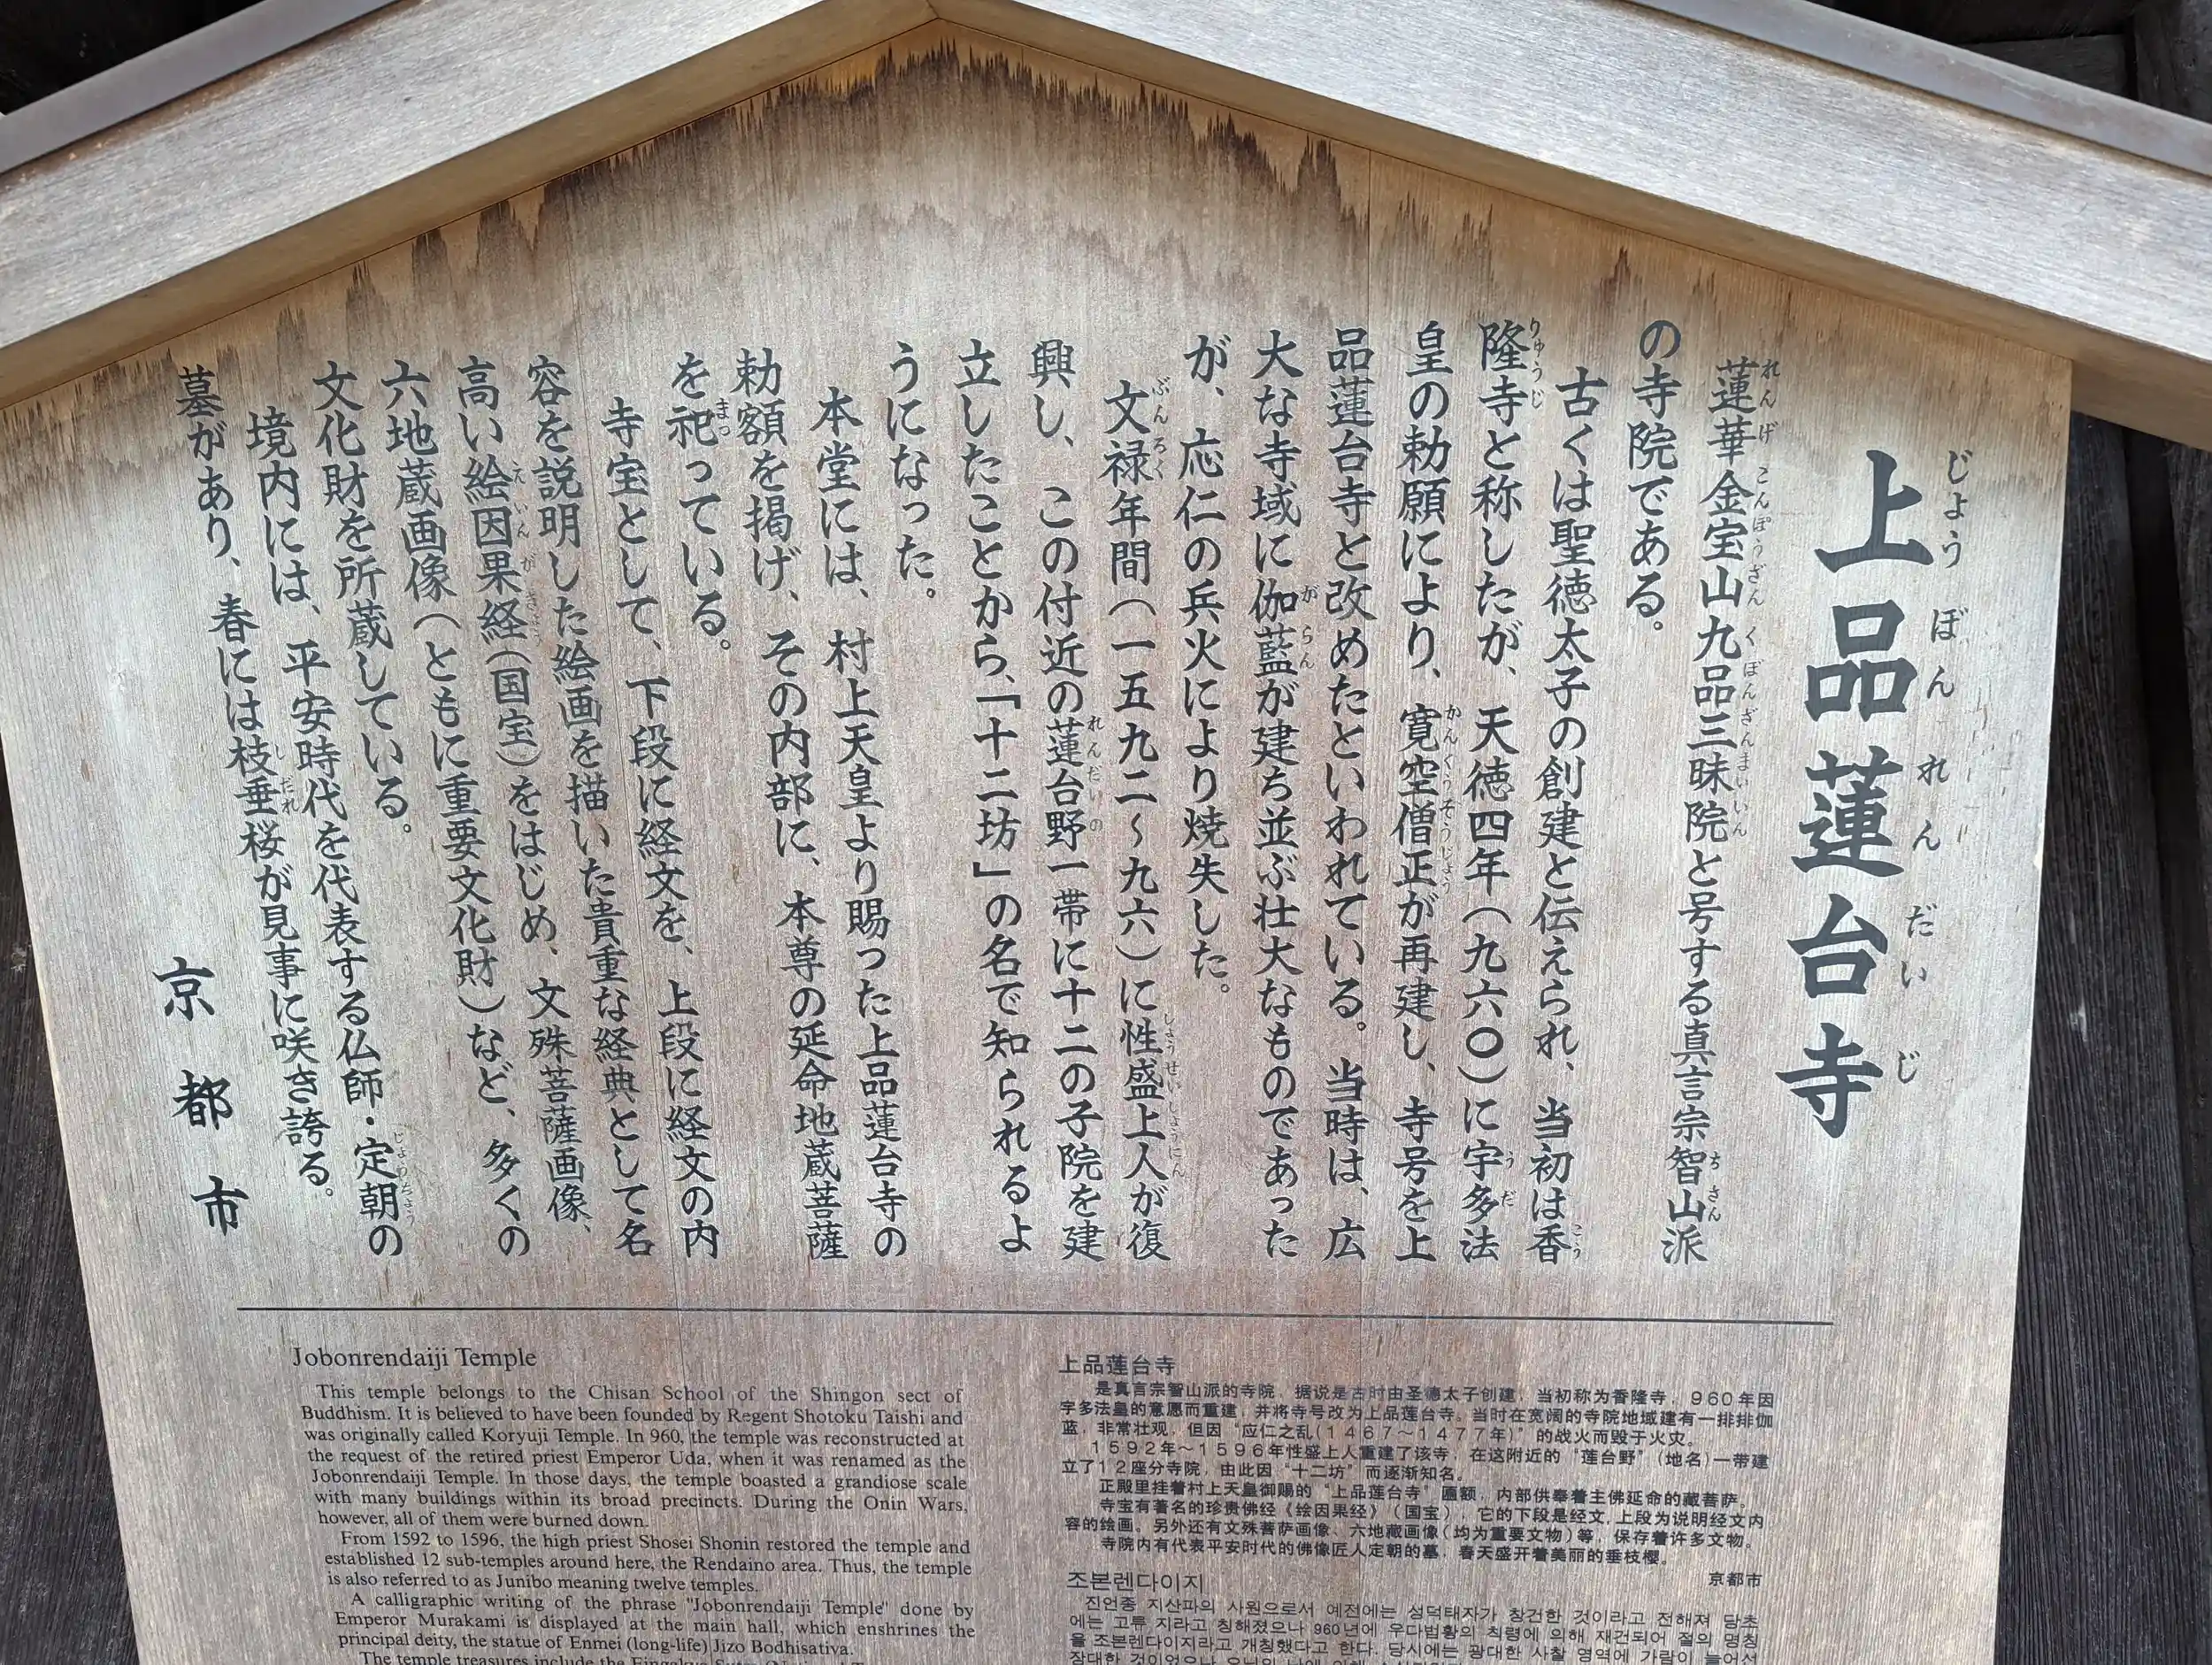 上品蓮台寺
じょうぼんれんだいじ
蓮華金宝山九品三昧院と号する真言宗智山派
の寺院である。
古くは聖徳太子の創建と伝えられ、当初は香
隆寺と称したが、天徳四年（九六〇）に宇多法
皇の勅願により、寛空僧正が再建し、寺号を上
品蓮台寺と改めたといわれている。当時は、広
大な寺域に伽藍が建ち並ぶ壮大なものであった
が、応仁の兵火により焼失した。
文禄年間（一五九二〜九六）に性盛上人が復
興し、この付近の蓮台野一帯に十二の子院を建
立したことから、「十二坊」の名で知られるよ
うになった。
本堂には、村上天皇より賜った上品蓮台寺の
勅額を掲げ、その内部に、本尊の延命地蔵菩薩
を祀っている。
寺宝として、下段に経文を、上段に経文の内
容を説明した絵画を描いた貴重な経典として名
高い絵因果経（国宝）をはじめ、文殊菩薩画像、
六地蔵画像（ともに重要文化財）など、多くの
文化財を所蔵している。
境内には、平安時代を代表する仏師・定朝の
墓があり、春には枝垂桜が見事に咲き誇る。
京都市
Jobonrendaiji Temple
This temple belongs to the Chisan School of the Shingon sect of
Buddhism. It is believed to have been founded by Regent Shotoku Taishi and
was originally called Koryuji Temple. In 960, the temple was reconstructed at
the request of the retired priest Emperor Uda, when it was renamed as the
Jobonrendaiji Temple. In those days, the temple boasted a grandiose scale
with many buildings within its broad precincts. During the Onin Wars,
however, all of them were burned down.
From 1592 to 1596, the high priest Shosei Shonin restored the temple and
established 12 sub-temples around here, the Rendaino area. Thus, the temple
is also referred to as Junibo meaning twelve temples.
A calligraphic writing of the phrase "Jobonrendaiji Temple" done by
Emperor Murakami is displayed at the main hall, which enshrines the
principal deity, the statue of Enmei (long-life) Jizo Bodhisativa.
The temple treasures include the
上品莲台寺
是真言宗智山派的寺院，据说是古时由圣德太子创建，当初称为香隆寺，960年因
宇多法皇的意愿而重建，并将寺号改为上品莲台寺。当时在宽阔的寺院地域建有一排排伽
蓝，非常壮观，但因“应仁之乱(1467～1477年)”的战火而毁于火灾。
1592年～1596年性盛上人重建了该寺，在这附近的“莲台野”(地名)一带建
立了12座分寺院，由此因“十二坊”而逐渐知名。
正殿里挂着村上天皇御赐的“上品莲台寺”匾额，内部供奉着主佛延命的藏菩萨。
寺宝有著名的珍贵佛经《绘因果经》（国宝），它的下段是经文，上段为说明经文内
容的绘画。另外还有文殊菩萨画像、六地藏画像(均为重要文物)等，保存着许多文物。
寺院内有代表平安时代的佛像匠人定朝的墓，春天盛开着美丽的垂枝樱。
京都市
조본렌다이지
진언종 지산파의 사원으로서 예전에는 성덕태자가 창건한 것이라고 전해져 당초
에는 고류 지라고 칭해졌으나 960년에 우다법황의 칙령에 의해 재건되어 절의 명칭
을 조본렌다이지라고 개칭했다고 한다. 당시에는 광대한 사찰 영역에 가람이 늘어선